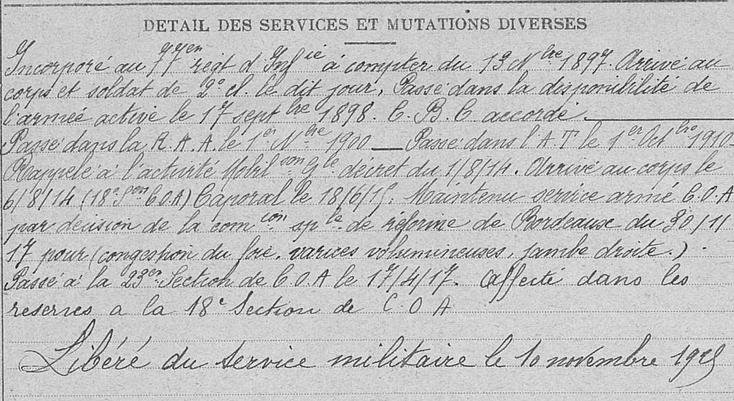 DETAIL DES SERVICES ET MUTATIONS DIVERSES
Incorporé au régt d'Infie à compter du 13 Nbre 1897. Arrivé au
corps et soldat de 2e cl. le dit jour, Passé dans la disponibilité de
l'armée active le 17 septbre 1898. C. B. C. accordé.
Passé dans la R.A.A. le 1er Nbre 1900 — Passé dans l'A.T. le 1er Octbre 1910
Rappelé à l'activité Mobilson Gle décret du 1/8/14. Arrivé au corps le
6/8/14 (18e Son C.O.A) Caporal le 18/6/15. Maintenu service armé C.O.A
par décision de la comcon sple de réforme de Bordeaux du 30/11
17 pour (congestion du foie, varices volumineuses, jambe droite.)
Passé à la 23e Section de C.O.A le 17/4/17. Affecté dans les
reserves a la 18e Section de C.O.A
Libéré du service militaire le 10 novembre